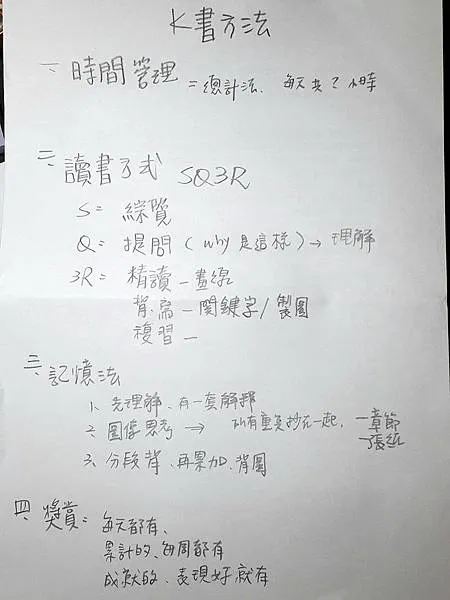 K書方法
一、時間管理=總計法. 每天共2小時
二、讀書方式 SQ3R
S= 綜覽
Q= 提問(why是這樣)→理解
3R= 精讀-畫線
背寫-關鍵字/製圖
複習-
三、記憶法
1、先理解、有一套解釋
2、圖像思考 → 所有重負抄在一起、一章節
一張紙
3、分段背、再累加、背圖
四、獎賞: 每天都有、
累計的、每周都有
成就的、表現好就有